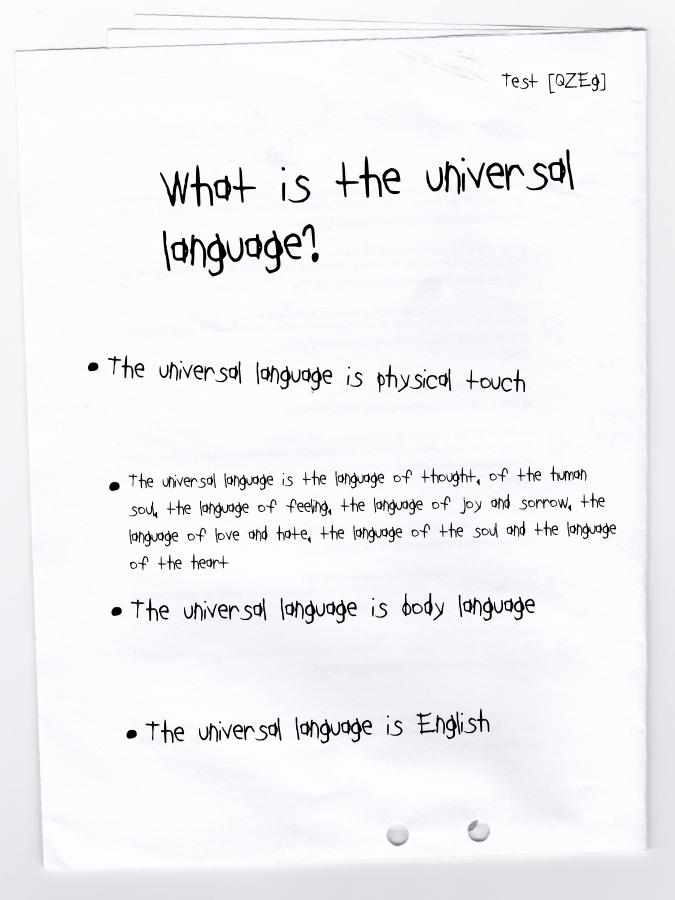 Test [QZEg]
What is the universal
language?
• The universal language is physical touch
• The universal language is the language of thought, of the human
soul, the language of feeling, the language of joy and sorrow, the
language of love and hate, the language of the soul and the language
of the heart
• The universal language is body language
• The universal language is English